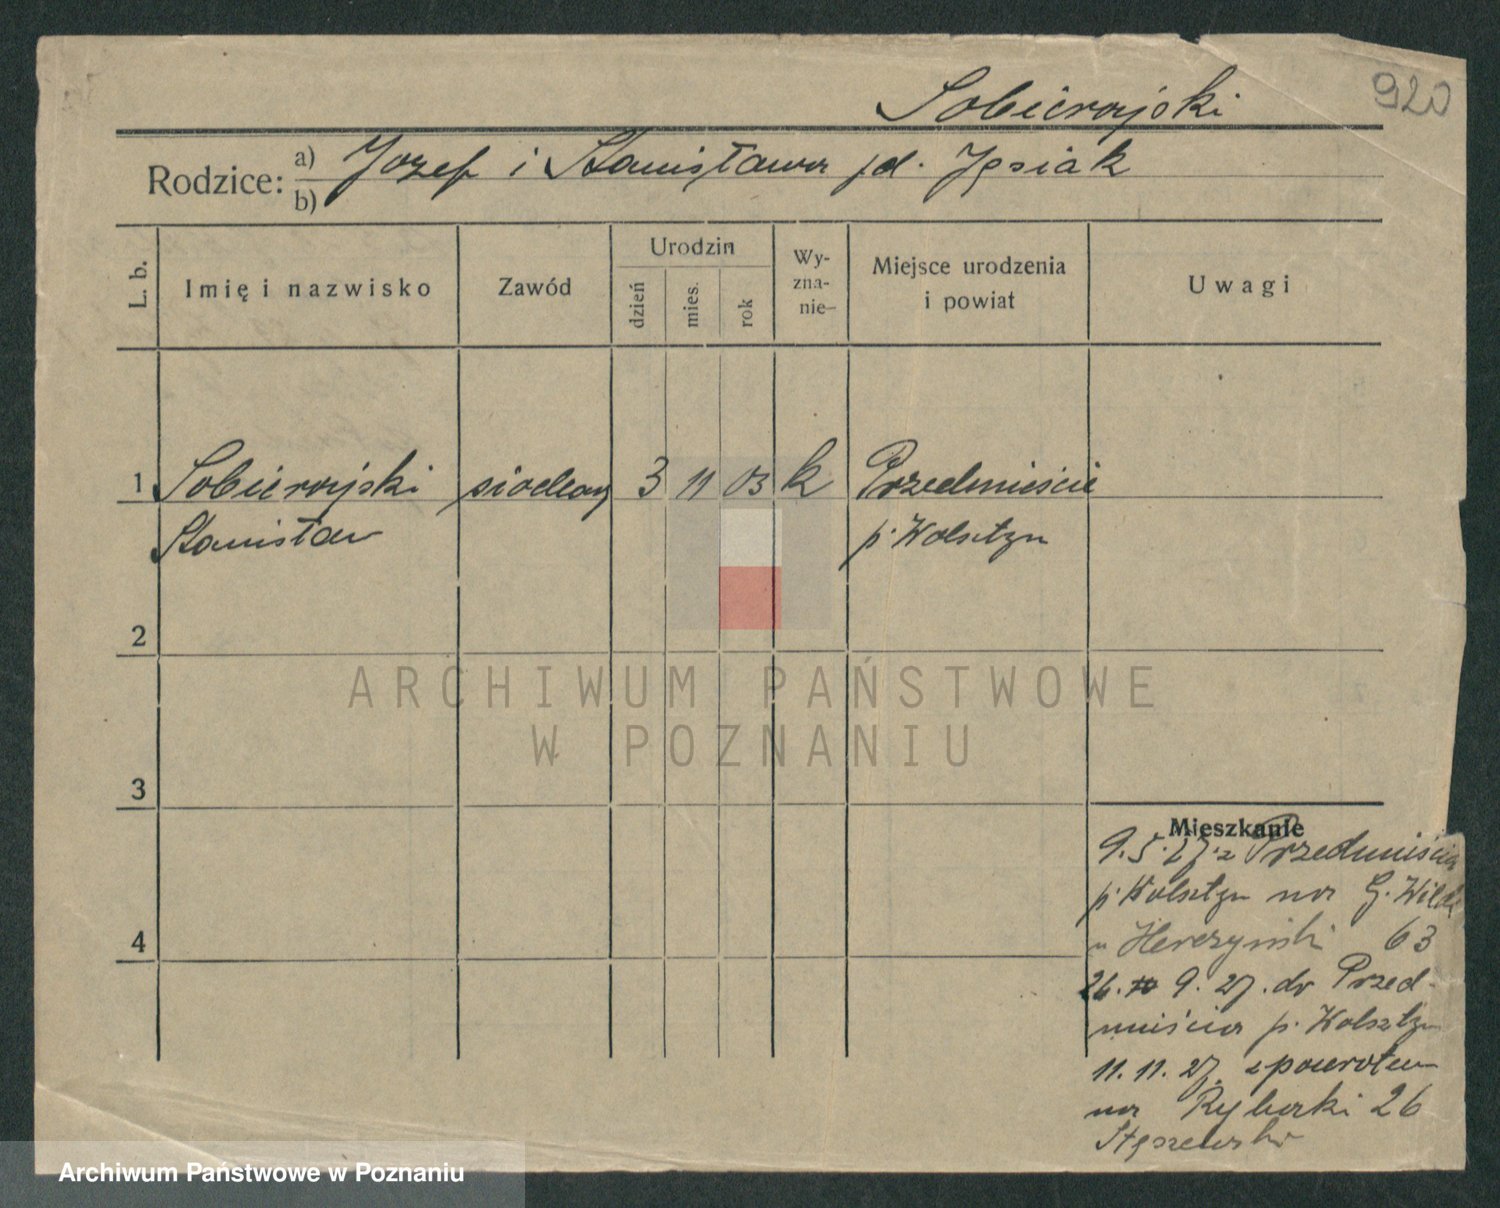 920
Sobierajski
Rodzice: a) Jozef i Stanisława jd. Jęsiak
b)
L. b.
Imię i nazwisko
Zawód
Urodzin
dzień
mies.
rok
Wy-
zna-
nie-
Miejsce urodzenia
i powiat
Uwagi
1 Sobierajski siodlarz 3 11 03 k Przedmieście
Stanisław p. Wolsztyn
2
3
4
Mieszkanie
9.5.27. z Przedmieścia
p. Wolsztyn na G. Wilda
u 63
26. 9. 27. do Przed-
mieścia p. Wolsztyn
11. 11. 27. spowrotem
na Rybaki 26
ARCHIWUM PAŃSTWOWE
W POZNANIU
Archiwum Państwowe w Poznaniu